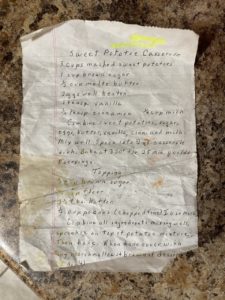 Sweet Potatoe Casserole
3 cups mashed sweet potatoes
1 cup brown sugar
½ cup melted butter
2 eggs well beaten
1 teasp vanilla
½ teasp cinnamon ¼ cup milk
Combine sweet potatoes, sugar,
eggs, butter, vanilla, cinn and milk
Mix well. Spoon into 2 qt casserole
dish. Bake at 350° for 25 min
Topping
brown sugar
flour
butter
cup pecans (chopped fine)
Combine all ingredients mixing well,
sprinkle on top of potatoe mixture.
Then bake. When done cover with